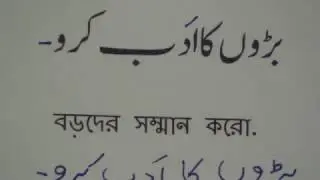 بڑوں کا اَدَب کرو-
বড়দের সম্মান করো.
بڑوں کا اَدَب کرو-